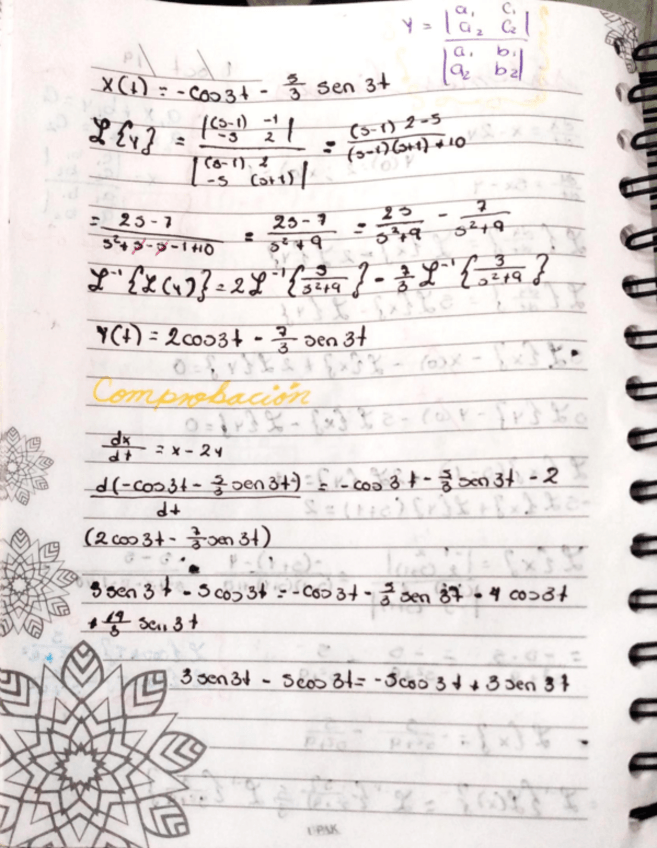 Y = |a₁ c₁| |a₂ c₂| / |a₁ b₁| |a₂ b₂|
X(t) = -cos3t - 5/3 sen 3t
ℒ{Y} = |(s-1) -1| |-5 2| / |(s-1) 2| |-5 (s+1)| = (s-1) 2 - 5 / (s-1)(s+1) + 10
= 2s-7 / s²+s-s-1+10 = 2s-7 / s²+9 = 2s / s²+9 - 7 / s²+9
ℒ⁻¹{ℒ(Y)} = 2ℒ⁻¹{s / s²+9} - 7/3 ℒ⁻¹{3 / s²+9}
Y(t) = 2cos3t - 7/3 sen 3t
Comprobación
dx/dt = x - 2y
d(-cos3t - 5/3 sen 3t) / dt = -cos 3t - 5/3 sen 3t - 2
(2cos 3t - 7/3 sen 3t)
3 sen 3t - 5 cos 3t = -cos 3t - 5/3 sen 3t - 4 cos 3t
+ 14/3 sen 3t
3 sen 3t - 5cos 3t = -5cos 3t + 3 sen 3t